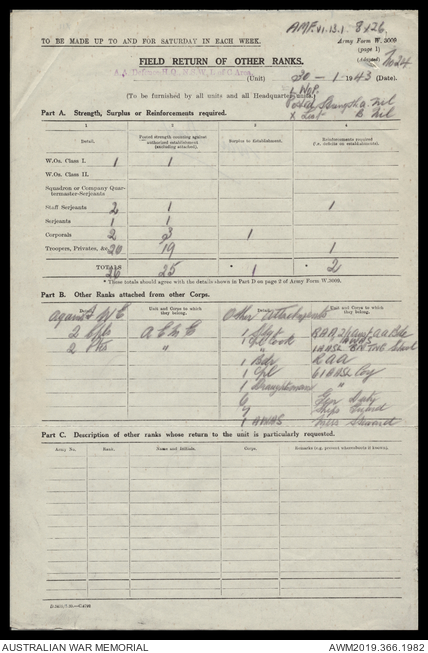 AMF.VI.13.1. 8x26
TO BE MADE UP TO AND FOR SATURDAY IN EACH WEEK.
Army Form W. 3009
(page 1)
(Adapted)
No 24
FIELD RETURN OF OTHER RANKS.
(Unit) 30 - 1 - 1943 (Date).
(To be furnished by all units and all Headquarters units.)
Nil
X List B. Nil
Part A. Strength, Surplus or Reinforcements required.
1 2 3 4
Detail. Posted strength counting against authorized establishment (excluding attached). Surplus to Establishment. Reinforcements required (i.e. deficits on establishment).
W.Os. Class I. 1 1
W.Os. Class II.
Squadron or Company Quarter-master-Serjeants
Staff Serjeants 2 1 1
Serjeants 1 1
Corporals 2 3 1
Troopers, Privates, &c. 20 19 1
TOTALS 26 25 * 1 * 2
* These totals should agree with the details shown in Part D on page 2 of Army Form W.3009.
Part B. Other Ranks attached from other Corps.
Detail Unit and Corps to which they belong. Details Unit and Corps to which they belong.
against W E Other attachments
2 Cpls
2 Ptes "
1 Cpl Cook
1 Bdr RAA
1 Cpl
1 Draughtsman "
6 Gen Duty
7
1 AWAS Mess Steward
Part C. Description of other ranks whose return to the unit is particularly requested.
Army No. Rank. Name and Initials. Corps. Remarks (e.g. present whereabouts if known).
AUSTRALIAN WAR MEMORIAL
AWM2019.366.1982